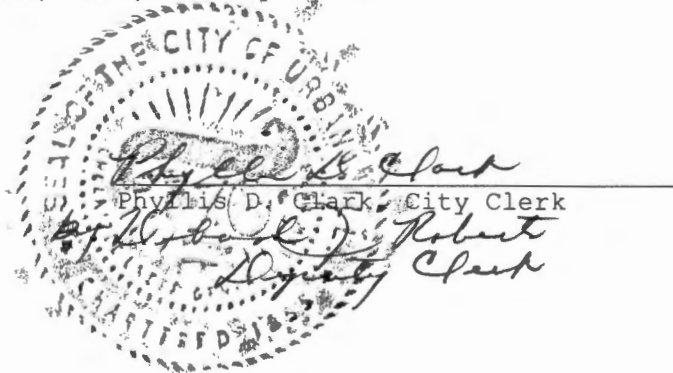 SEAL OF THE CITY OF URBANA
Phyllis D. Clark
Phyllis D. Clark, City Clerk
by Deborah J. Roberts
Deputy Clerk
CHARTERED